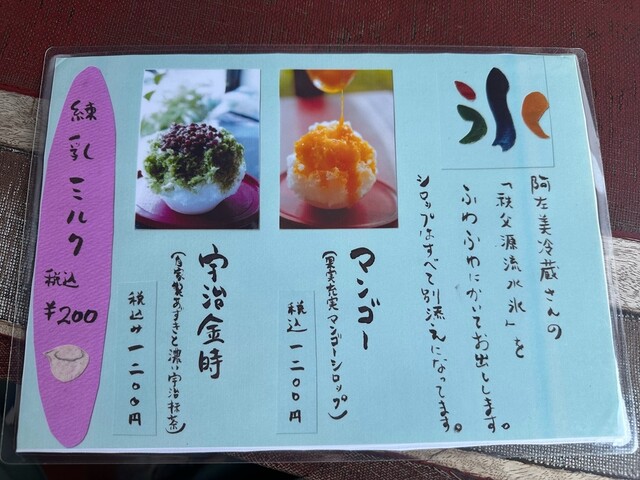 氷
阿左美冷蔵さんの
「秩父源流水氷」を
ふわふわにかいてお出しします。
シロップはすべて別添えになってます。
マンゴー
(果実充実マンゴーシロップ)
税込 一二〇〇円
宇治金時
(自家製あずきと濃い宇治抹茶)
税込み 一二〇〇円
練乳ミルク
税込
¥200